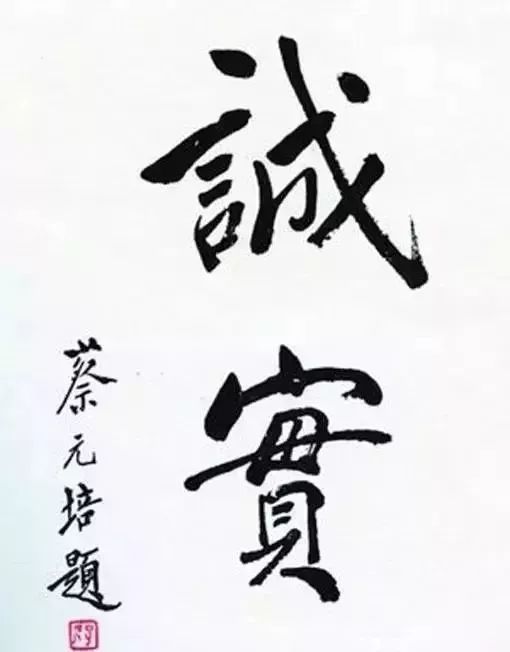 誠實
蔡元培題